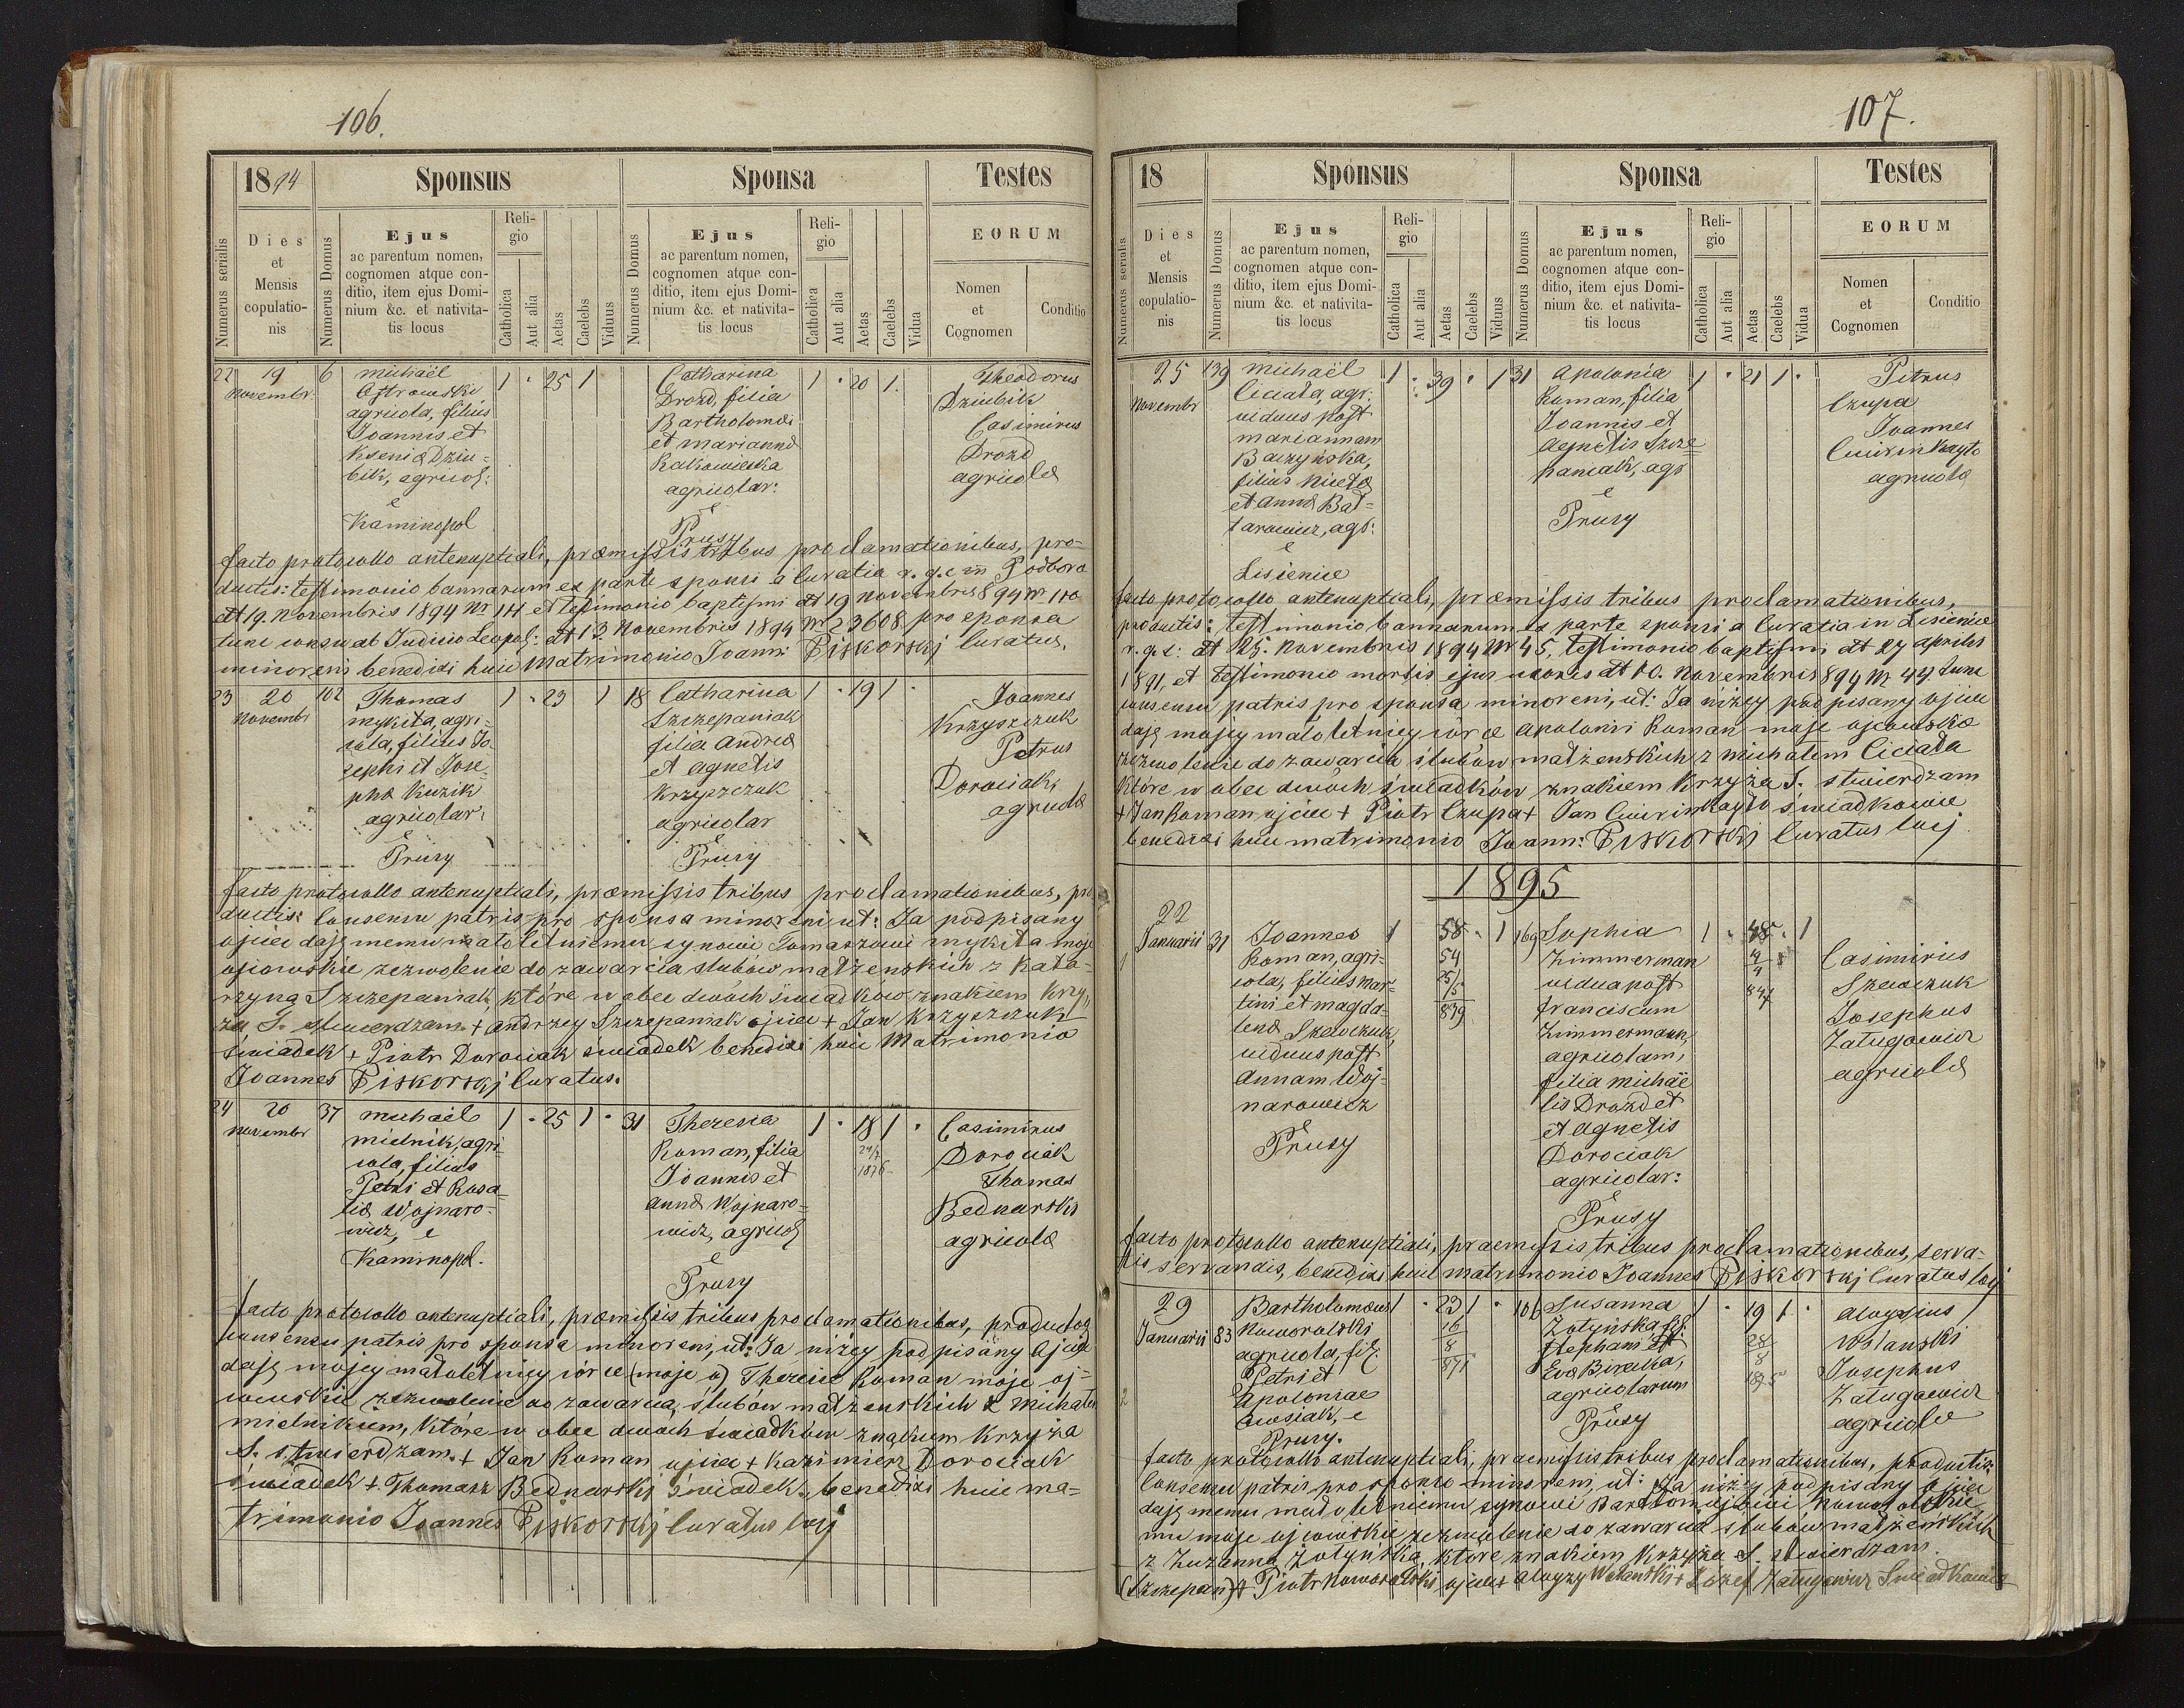 106.
1894
Sponsus
Sponsa
Testes
Numerus serialis
Dies
et
Mensis
copulatio-
nis
Numerus Domus
Ejus
ac parentum nomen,
cognomen atque con-
ditio, item ejus Domi-
nium &c. et nativita-
tis locus
Reli-
gio
Catholica
Aut alia
Aetas
Caelebs
Viduus
Numerus Domus
Ejus
ac parentum nomen,
cognomen atque con-
ditio, item ejus Domi-
nium &c. et nativita-
tis locus
Reli-
gio
Catholica
Aut alia
Aetas
Caelebs
Vidua
EORUM
Nomen
et
Cognomen
Conditio
22
19
Novembr.
6
Michaël
Ostrowski
agricola, filius
Joannis et
Kseniæ Dziu-
bik, agricol:
e
Kaminopol
1 · 25 1
Catharina
Drozd, filia
Bartholomæi
et Mariannæ
Rakowieska
agricolar:
e
Prusy
1 · 20 1.
Theodorus
Dziubik
Casimirus
Drozd
agricolæ
facto protocollo antenuptiali, præmissis tribus proclamationibus, pro-
ductis: testimonio bannarum ex parte sponsi a Curatia r. g. c in Podbora
dt 19. Novembris 1894 Nr 114 et testimonio baptismi dt 19 Novembris 894 Nr 110
tunc consensu Judicio Leopol: dt 13 Novembris 1894 Nr 23608 pro sponsa
minoreni benedixi huic Matrimonio Joann: Piskorskj Curatus.
23
20
Novembr
102
Thomas
Mykita, agri-
cola, filius Jo-
sephi et Jose-
phæ Kuzik
agricolar:
e
Prusy
1 · 23 1
18
Catharina
Szczepaniak
filia Andreæ
et Agnetis
Krzyszczuk
agricolar
e
Prusy
1 · 19 1 ·
Joannes
Krzyszczuk
Petrus
Dorociak,
agricolæ
facto protocollo antenuptiali, præmissis tribus proclamationibus, pro
ductis: Consensu patris pro sponsa minoreni ut: Ja podpisany
ojciec daję memu małoletniemu synowi Tomaszowi Mykita moje
ojcowskie zezwolenie do zawarcia ślubów małżenskich z Kata-
rzyną Szczepaniak, które w obec dwóch świadków znakiem krzy-
ża S. stwierdzam. + Andrzey Szczepaniak ojciec + Jan Krzyszczuk
świadek + Piotr Dorociak świadek benedixi huic Matrimonio
Joannes Piskorskj Curatus.
24
20
Novembr
37
Michaël
Mielnik, agri
cola, filius
Petri et Rosa-
liæ Wojnaro-
wicz, e
Kaminopol.
1 · 25 1 ·
31
Theresia
Roman, filia
Joannis et
Annæ Wojnaro-
wicz, agricol
e
Prusy
1 · 18 1 ·
1876
Casimirus
Dorociak
Thomas
Bednarski
agricolæ
facto protocollo antenuptiali, præmissis tribus proclamationibus, producto
consensu patris pro sponsa minoreni, ut: Ja niżey podpisany Ojciec
daję mojey małoletniey córce (moje o) Theresie Roman moje oj-
cowskie zezwolenie do zawarcia, ślubów małżenskich z Michałem
Mielnikiem, które w obec dwóch świadków znakiem Krzyża
S. stwierdzam. + Jan Roman ojciec + Kazimierz Dorociak
świadek + Thomasz Bednarskj świadek. benedixi huic ma-
trimonio Joannes Piskorskj Curatus loci
107.
18
Sponsus
Sponsa
Testes
Numerus serialis
Dies
et
Mensis
copulatio-
nis
Numerus Domus
Ejus
ac parentum nomen,
cognomen atque con-
ditio, item ejus Domi-
nium &c. et nativita-
tis locus
Reli-
gio
Catholica
Aut alia
Aetas
Caelebs
Viduus
Numerus Domus
Ejus
ac parentum nomen,
cognomen atque con-
ditio, item ejus Domi-
nium &c. et nativita-
tis locus
Reli-
gio
Catholica
Aut alia
Aetas
Caelebs
Vidua
EORUM
Nomen
et
Cognomen
Conditio
25
Novembr
139
Michaël
Ciciała, agr:
viduus post
Mariannam
Baczyńska,
filius Nicetæ
et Annæ Bał-
tarowicz, agr:
e
Lisienice
1 · 39 · 1
31
Apolonia
Roman, filia
Joannis et
Agnetis Szcze-
paniak, agr
e
Prusy
1 · 21 1 ·
Petrus
Czupa
Joannes
agricolæ
facto protocollo antenuptiali, præmissis tribus proclamationibus,
productis: testimonio bannarum ex parte sponsi a Curatia in Lisienice
r. g. c: dt 25. Novembris 1894 Nr 45, testimonio baptismi dt 27 Aprilis
1891, et testimonio mortis ejus uxoris dt 10. Novembris 894 Nr 44 tunc
consensu patris pro sponsa minoreni, ut: Ja niżey podpisany ojciec
daję mojey małoletniey córce Apolonii Roman moje ojcowskie
zezwolenie do zawarcia ślubów małżenskich z Michałem Ciciała
które w obec dwóch świadków znakiem Krzyża S. stwierdzam
+ Jan Roman, ojciec + Piotr Czupa + Jan świadkowie
benedixi huic matrimonio Joann: Piskorskj Curatus loci
1895
1
22
Januarii
31
Joannes
Roman, agri-
cola, filius Mar-
tini et Magda-
lenæ Szewczuk,
viduus post
Annam Woj-
narowicz
e
Prusy
1 58 · 1
54
25/5
839
169
Sophia
Zimmerman
vidua post
Franciscum
Zimmermann,
agricolam,
filia Michaë
lis Drozd et
et Agnetis
Dorociak
agricolar:
e
Prusy
1 · 48 · 1
4
4
847
Casimirus
Szewczuk
Josephus
Załugowicz
agricolæ
facto protocollo antenuptiali, praemissis tribus proclamationibus, serva-
tis servandis, benedixi huic matrimonio Joannes Piskorskj Curatus loci
2
29
Januarii
83
Bartholomæus
Noworolski
agricola, fil.
Petri et
Apoloniae
Cwosiak, e
Prusy.
1 · 23 1 ·
16
8
871
106
Susanna
Żołyńska, fil.
Stephani et
Evæ Birecka,
agricolarum
e
Prusy
1 · 19 1 ·
28
8
1875
Aloysius
Wolanski
Josephus
Załugowicz
agricolæ
facto protocollo antenuptiali, praemissis tribus proclamationibus, productis:
Consensu patris pro sponso minoreni, ut: Ja niżey podpisany ojciec
daję memu małoletniemu synowi Bartłomiejowi Noworolskie
mu moje ojcowskie zezwolenie do zawarcia ślubów małżeńskich
z Zuzanną Żołyńską, które znakiem Krzyża S. stwierdzam.
(Szczepan) + Piotr Noworolski ojciec + Aloyzy Wolanski + Józef Załugowicz Świadkowie